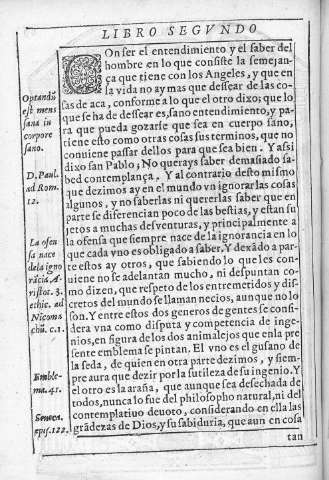 LIBRO SEGVNDO
COn ser el entendimiento y el saber del
hombre en lo que consiste la semejan-
ça que tiene con los Angeles, y que en
la vida no ay mas que dessear de las co-
sas de aca, conforme a lo que el otro dixo; que lo
que se ha de dessear es, sano entendimiento, y pa-
ra que pueda gozarse que sea en cuerpo sano,
tiene esto como otras cosas sus terminos, que no
conuiene passar dellos para que sea bien. Y assi
dixo san Pablo; No querays saber demasiado sa-
bed con templança. Y al contrario desto mismo
que dezimos ay en el mundo vn ignorar las cosas
algunos, y no saberlas ni quererlas saber que en
parte se diferencian poco de las bestias, y estan su
jetos a muchas desventuras, y principalmente a
la ofensa que siempre nace de la ignorancia en lo
que cada vno es obligado a saber. Y dexado a par-
te estos ay otros, que sabiendo lo que les con-
uiene no se adelantan mucho, ni despuntan co-
mo dizen, que respeto de los entremetidos y dis-
cretos del mundo se llaman necios, aunque no lo
son. Y entre estos dos generos de gentes se confi-
dera vna como disputa y competencia de inge-
nios, en figura de los dos animalejos que en la pre
sente emblema se pintan. El vno es el gusano de
la seda, de quien en otra parte dezimos, y siem-
pre aura que dezir por la sutileza de su ingenio. Y
el otro es la araña, que aunque sea desechada de
todos, nunca lo fue del philosopho natural, ni del
contemplatiuo deuoto, considerando en ella las
grãdezas de Dios, y su sabiduria, que aun en cosa
tan
Optandũ
est mens
sana in
corpore
sano.
D. Paul.
ad Rom.
12.
La ofen
sa nace
dela igno
rãcia. A-
ristot. 3.
ethic. ad
Nicoma
chũ. c. 1.
Emble-
ma. 41.
Seneca.
epis. 122.